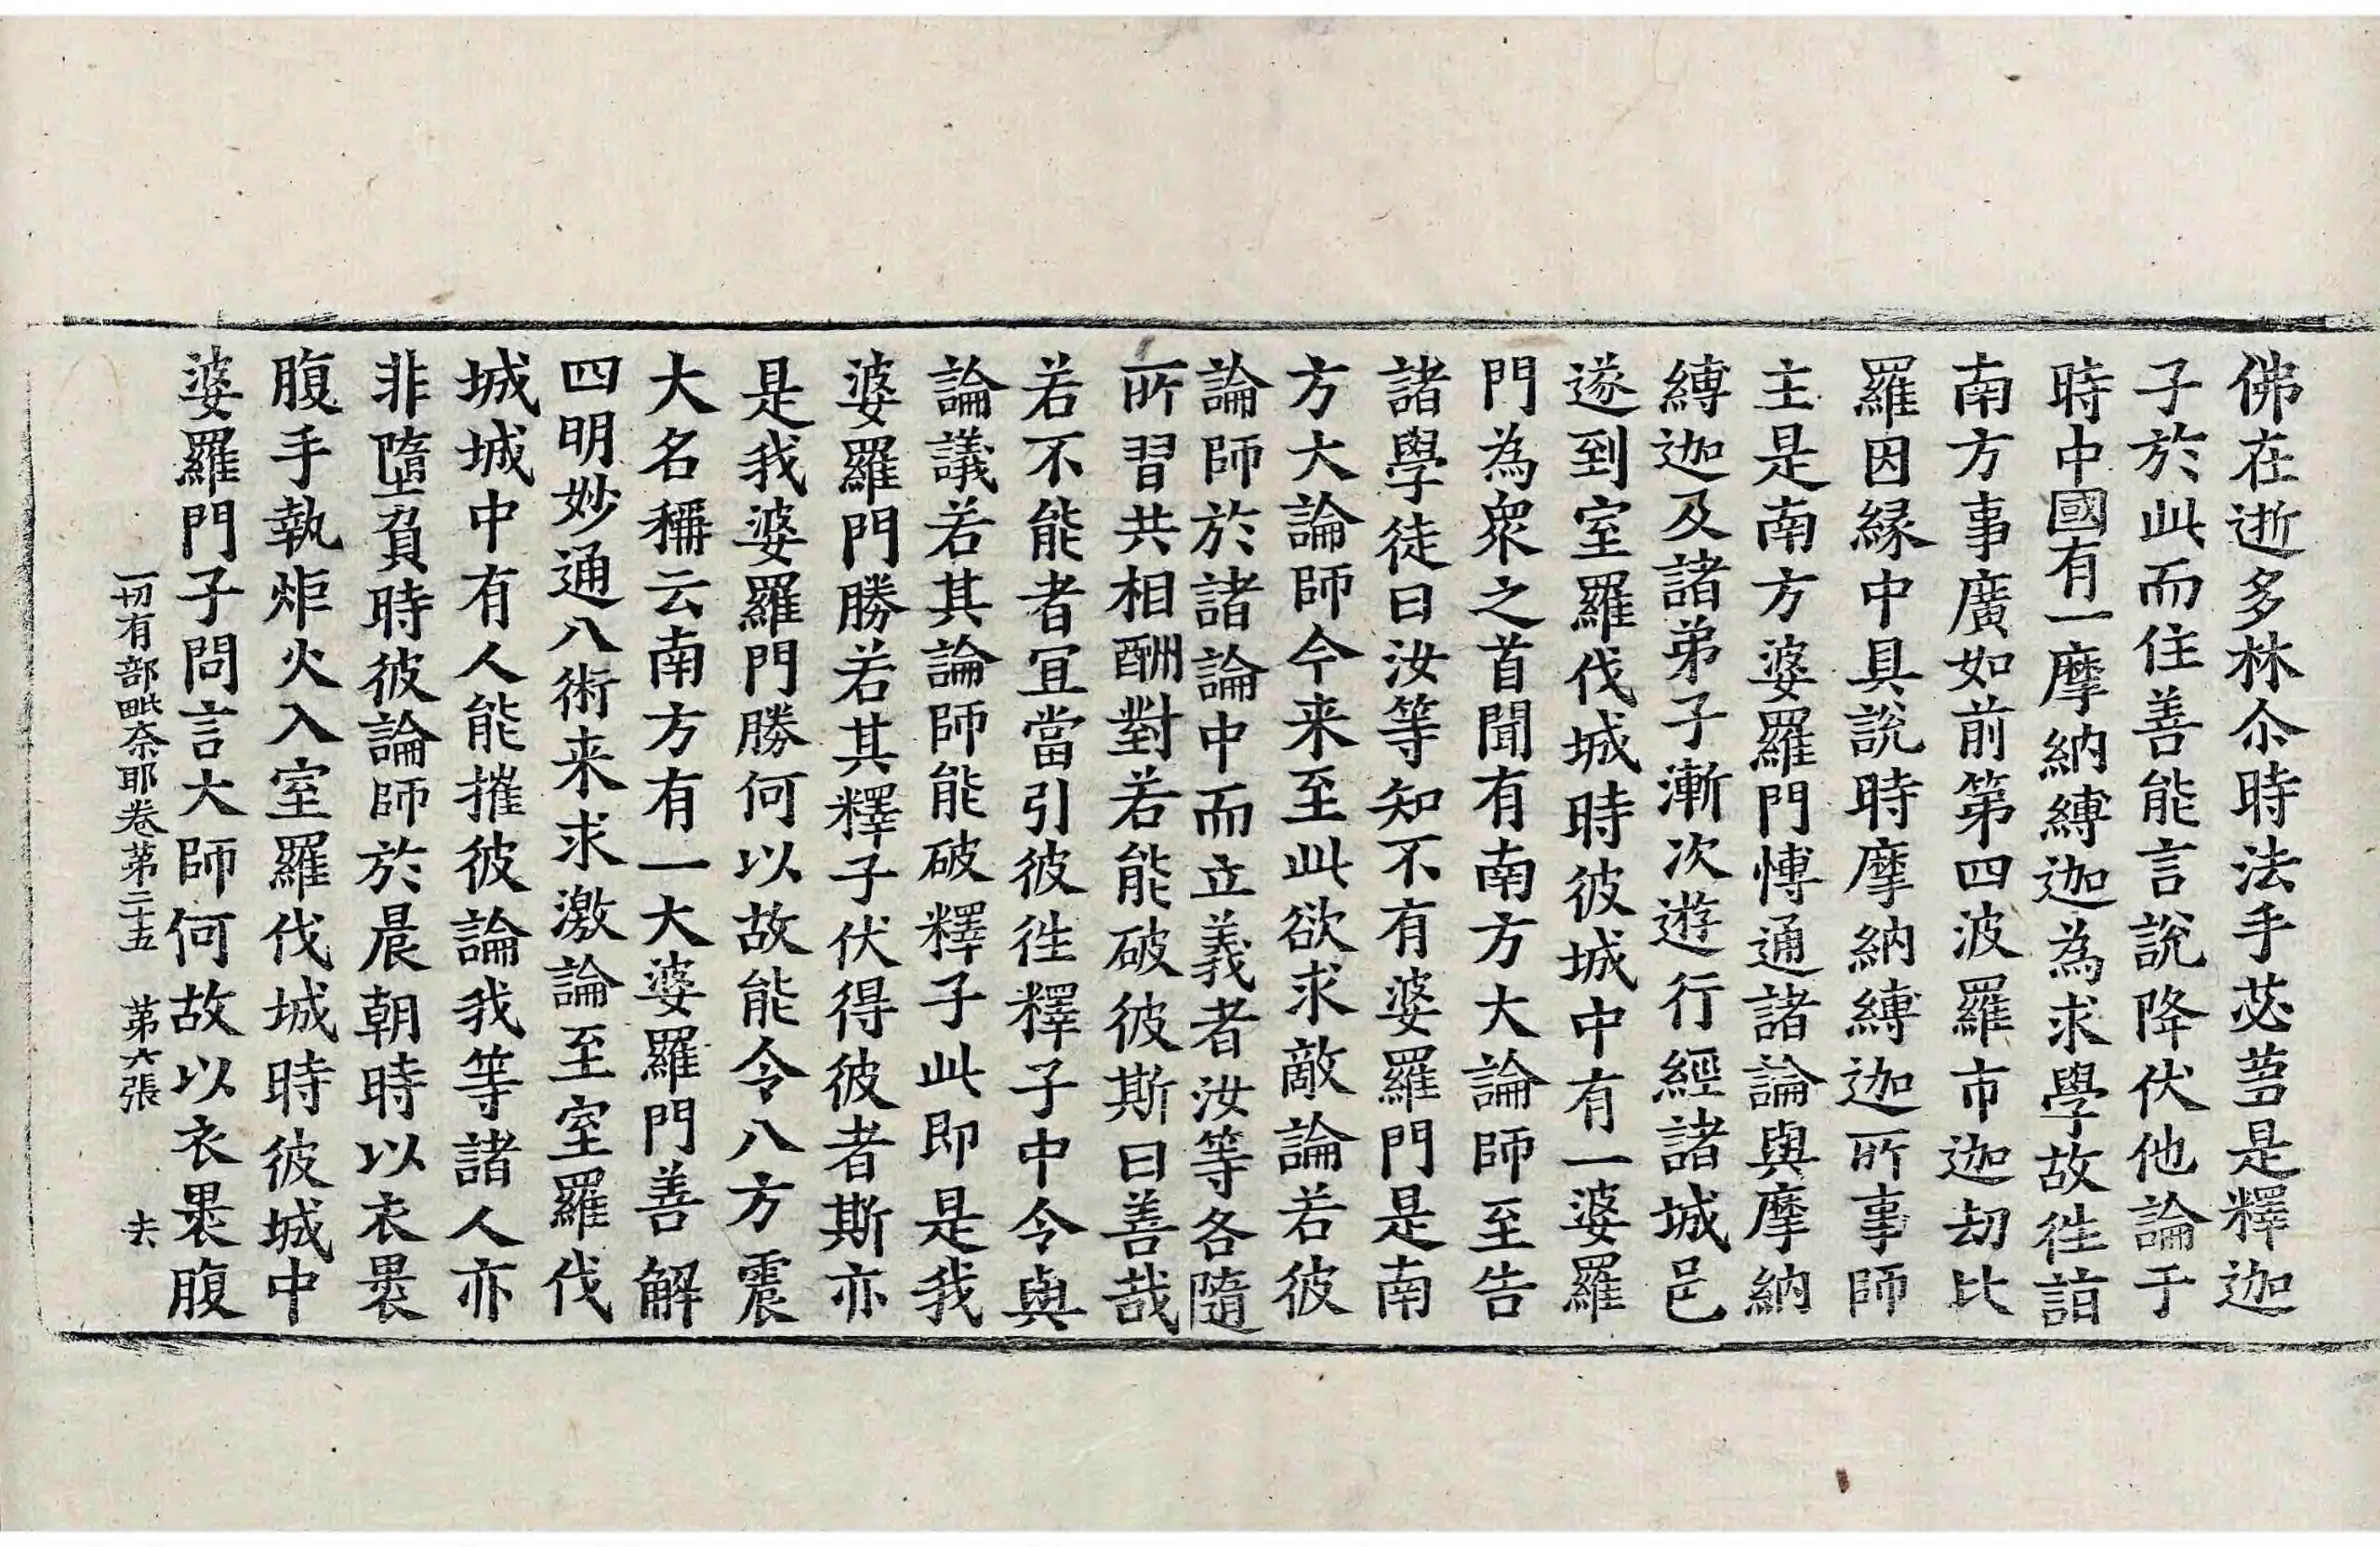 佛在逝多林尒時法手苾蒭是釋迦
子於此而住善能言說降伏他論于
時中國有一摩納縛迦為求學故徃詣
南方事廣如前第四波羅市迦刼比
羅因緣中具說時摩納縛迦所事師
主是南方婆羅門博通諸論與摩納
縛迦及諸弟子漸次遊行經諸城邑
遂到室羅伐城時彼城中有一婆羅
門為衆之首聞有南方大論師至告
諸學徒曰汝等知不有婆羅門是南
方大論師今来至此欲求敵論若彼
論師於諸論中而立義者汝等各隨
所習共相酬對若能破彼斯曰善哉
若不能者冝當引彼徃釋子中令與
論議若其論師能破釋子此即是我
婆羅門勝若其釋子伏得彼者斯亦
是我婆羅門勝何以故能令八方震
大名稱云南方有一大婆羅門善解
四明妙通八術来求激論至室羅伐
城城中有人能摧彼論我等諸人亦
非墮負時彼論師於晨朝時以衣褁
腹手執炬火入室羅伐城時彼城中
婆羅門子問言大師何故以衣褁腹
一切有部毗奈耶卷第二十五 第六張 夫